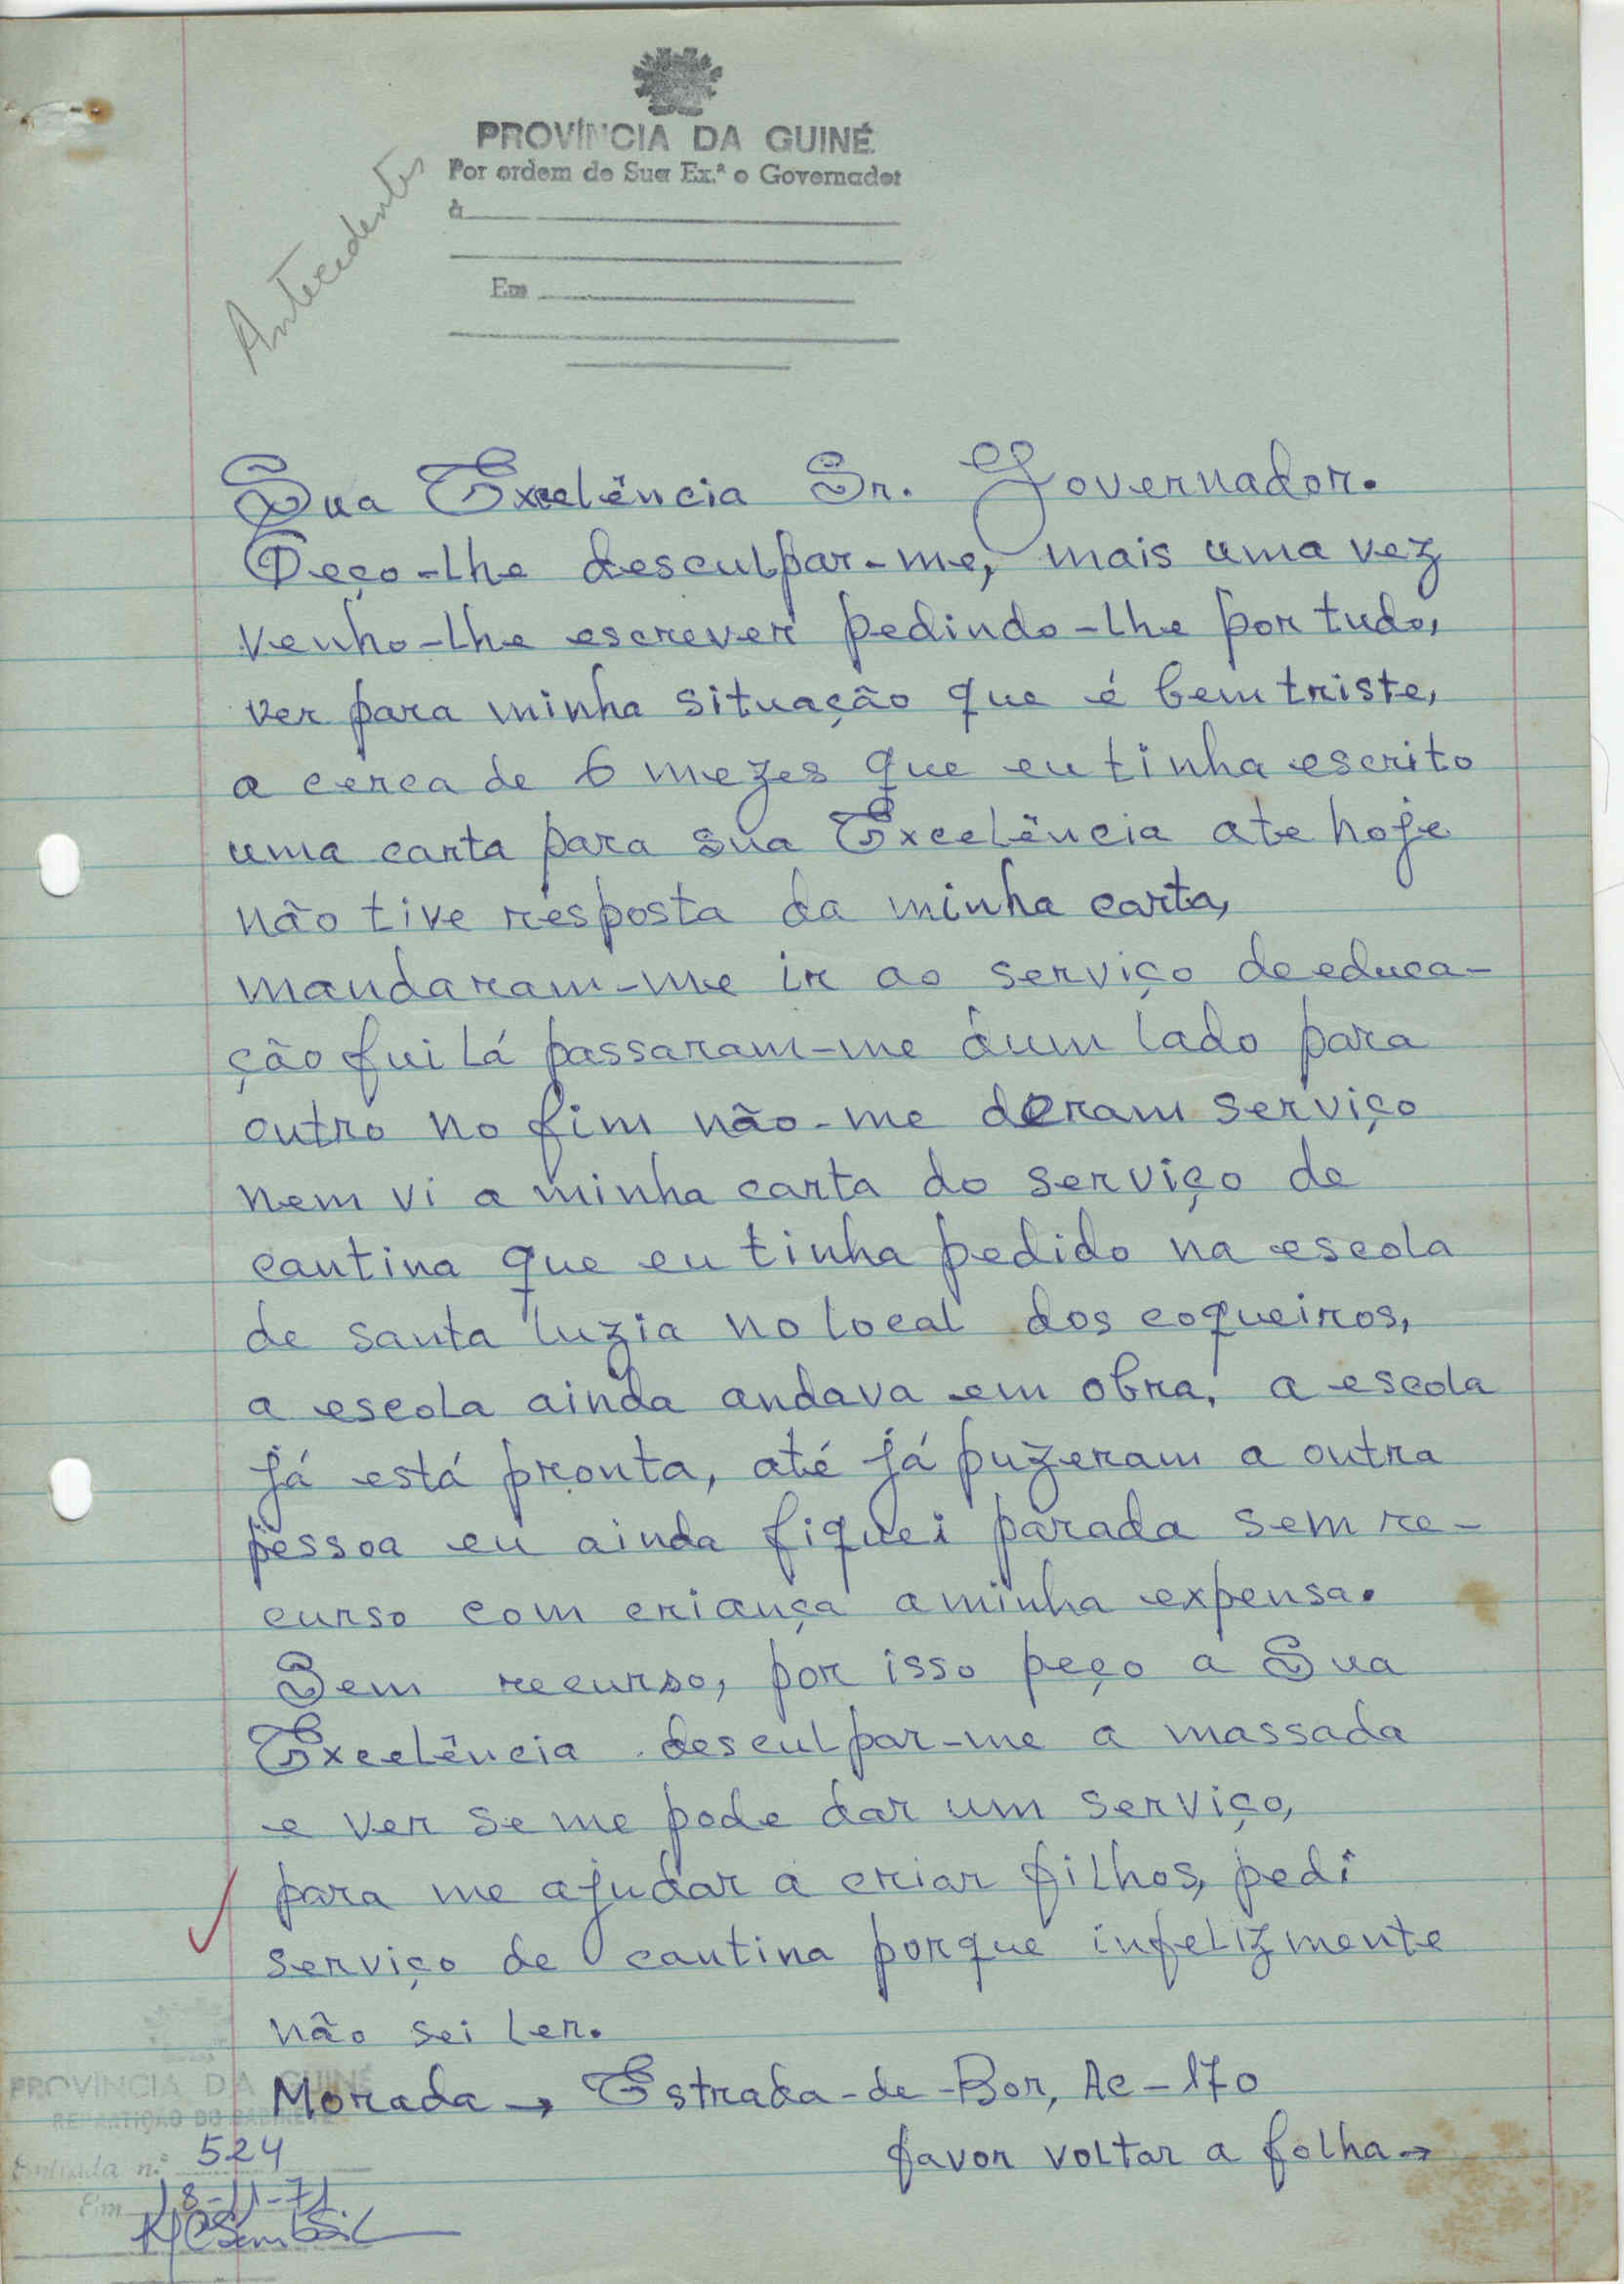 PROVÍNCIA DA GUINÉ
Por ordem de Sua Ex.ª o Governador
à
Em
Antecedentes
Sua Excelência Sr. Governador.
Peço-lhe desculpar-me, mais uma vez
venho-lhe escrever pedindo-lhe por tudo,
ver para minha situação que é bem triste,
a cerca de 6 mezes que eu tinha escrito
uma carta para sua Excelência ate hoje
não tive resposta da minha carta,
mandaram-me ir ao serviço de educa-
ção fui lá passaram-me dum lado para
outro no fim não-me deram serviço
nem vi a minha carta do serviço de
cantina que eu tinha pedido na escola
de santa luzia no local dos coqueiros,
a escola ainda andava em obra, a escola
já está pronta, até já puzeram a outra
pessoa eu ainda fiquei parada sem re-
curso com criança a minha expensa.
Sem recurso, por isso peço a Sua
Excelência desculpar-me a massada
e ver se me pode dar um serviço,
para me ajudar a criar filhos, pedi
serviço de cantina porque infelizmente
não sei ler.
Morada → Estrada-de-Bor, Ac-170
favor voltar a folha→
PROVINCIA DA GUINÉ
REPARTIÇÃO DO GABINETE
Entrada n.º 524
Em 18-11-71